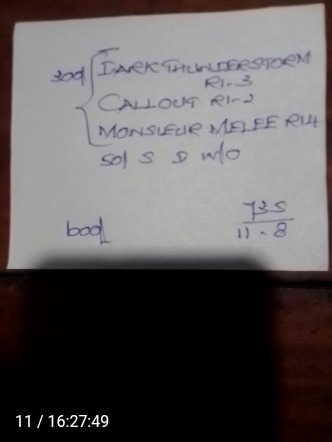 300/ DARK THUNDERSTORM
R1-3
CALLOUT R1-2
MONSIEUR MELEE R1-4
50/ S D W/O
600/
735
11-8
11 / 16:27:49